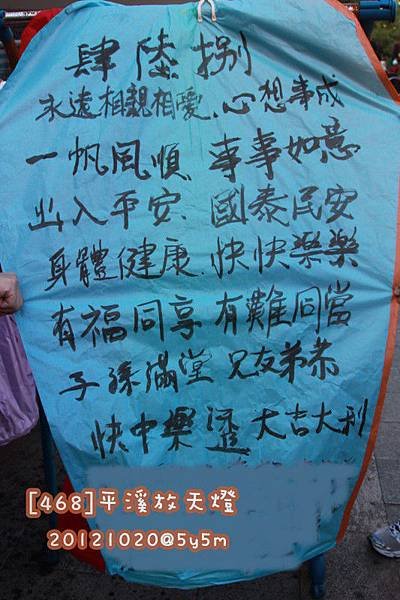 肆陸捌
永遠相親相愛、心想事成
一帆風順 事事如意
出入平安、國泰民安
身體健康、快快樂樂
有福同享 有難同當
子孫滿堂 兄友弟恭
快中樂透 大吉大利
[468]平溪放天燈
20121020@5y5m